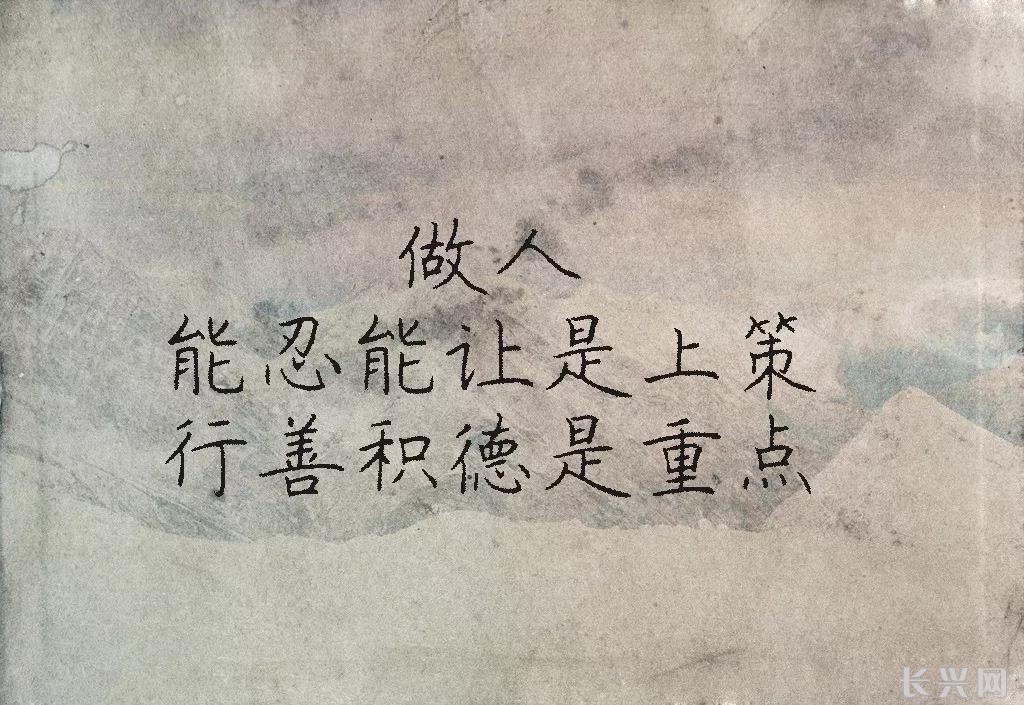 做人
能忍能让是上策
行善积德是重点
长兴网